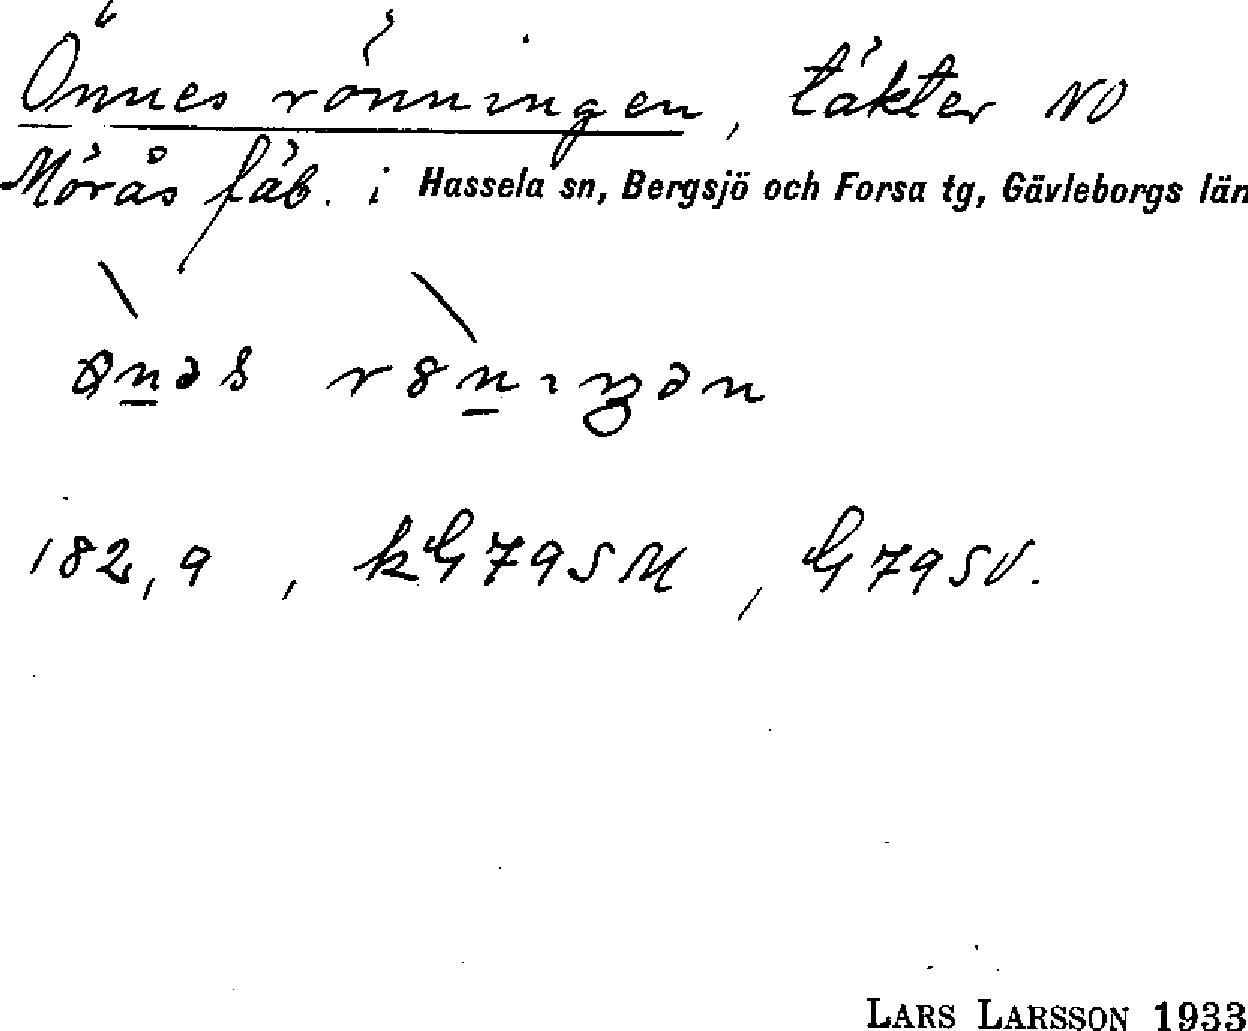 Önnes rönningen, täkter NO
Mörås fäb. i Hassela sn, Bergsjö och Forsa tg, Gävleborgs län
182,9, kG795M, G795V.
LARS LARSSON 1933